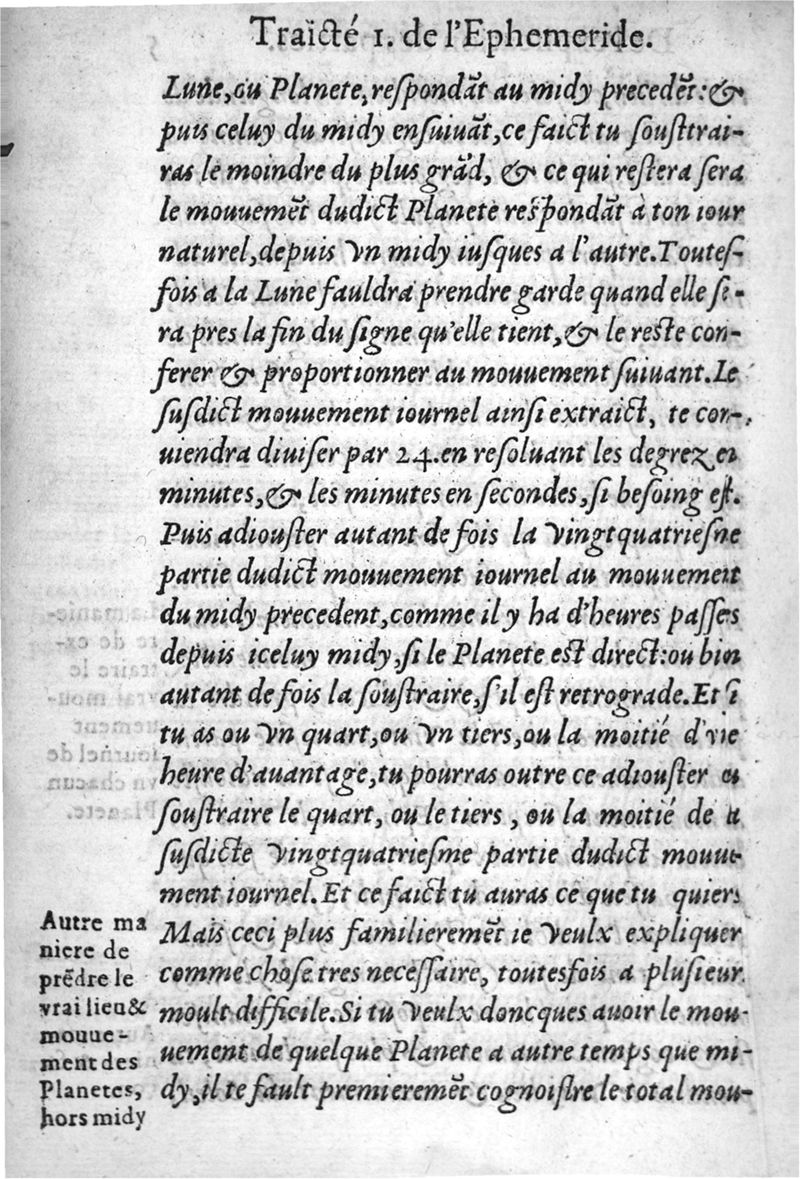 Traïcté 1. de l'Ephemeride.
Lune, ou Planete, reſpondãt au midy precedẽt: &
puis celuy du midy enſuiuãt, ce faict tu ſouſtrai-
ras le moindre du plus grãd, & ce qui reſtera ſera
le mouuemẽt dudict Planete reſpondãt à ton iour
naturel, depuis vn midy iuſques a l'autre. Touteſ-
fois a la Lune fauldra prendre garde quand elle ſe-
ra pres la fin du ſigne qu'elle tient, & le reſte con-
ferer & proportionner au mouuement ſuiuant. Le
ſuſdict mouuement iournel ainſi extraict, te con-
uiendra diuiſer par 24. en reſoluant les degrez en
minutes, & les minutes en ſecondes, ſi beſoing eſt.
Puis adiouſter autant de fois la vingtquatrieſne
partie dudict mouuement iournel au mouuement
du midy precedent, comme il y ha d'heures paſſes
depuis iceluy midy, ſi le Planete eſt direct: ou bien
autant de fois la ſouſtraire, s'il eſt retrograde. Et ſi
tu as ou vn quart, ou vn tiers, ou la moitié d'vne
heure d'auantage, tu pourras outre ce adiouſter
ſouſtraire le quart, ou le tiers, ou la moitié de
ſuſdicte vingtquatrieſme partie dudict mouue-
ment iournel. Et ce faict tu auras ce que tu quiers
Mais ceci plus familieremẽt ie veulx expliquer
comme choſe tres neceſſaire, toutesfois a pluſieur
moult difficile. Si tu veulx doncques auoir le mou-
uement de quelque Planete a autre temps que mi-
dy, il te fault premieremẽt cognoiſtre le total mou-
Autre ma
niere de
prẽdre le
vrai lieu &
mouue-
ment des
Planetes,
hors midy